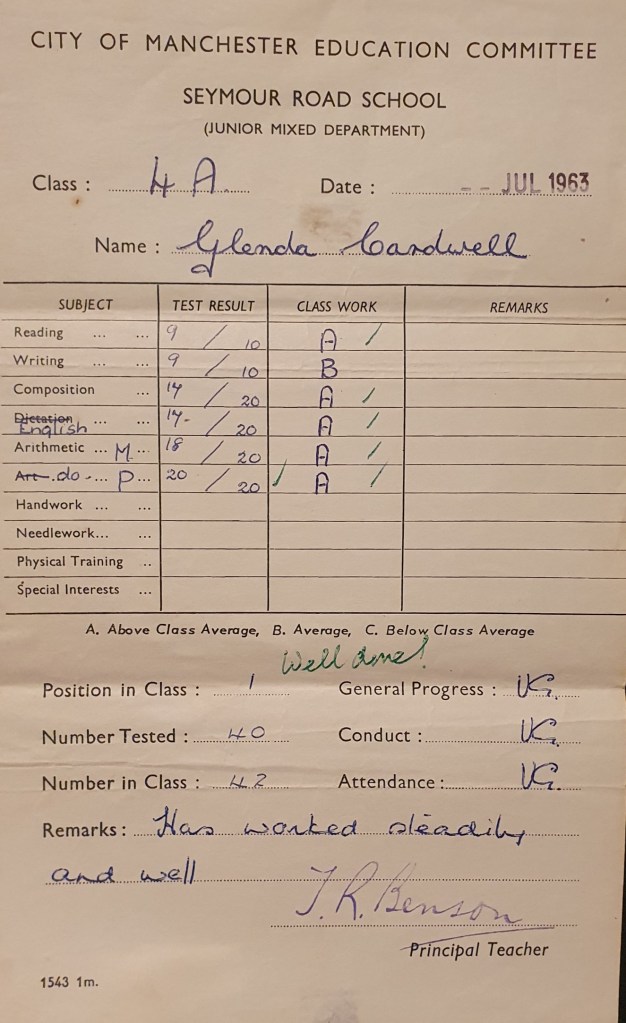 CITY OF MANCHESTER EDUCATION COMMITTEE
SEYMOUR ROAD SCHOOL
(JUNIOR MIXED DEPARTMENT)
Class : 4 A. Date : -- JUL 1963
Name : Glenda Cardwell
SUBJECT TEST RESULT CLASS WORK REMARKS
Reading ... ... 9 / 10 A /
Writing ... ... 9 / 10 B
Composition ... 17 / 20 A /
Dictation ... ... 17- / 20 A /
English
Arithmetic ... M. ... 18 / 20 A /
Art do - ... P ... 20 / 20 ✓ A /
Handwork ... ...
Needlework... ...
Physical Training ..
Special Interests ...
A. Above Class Average, B. Average, C. Below Class Average
Well done!
Position in Class : 1 General Progress : VG.
Number Tested : 40 Conduct : VG.
Number in Class : 42 Attendance : VG.
Remarks : Has worked steadily
and well
T. R. Benson
Principal Teacher
1543 1m.